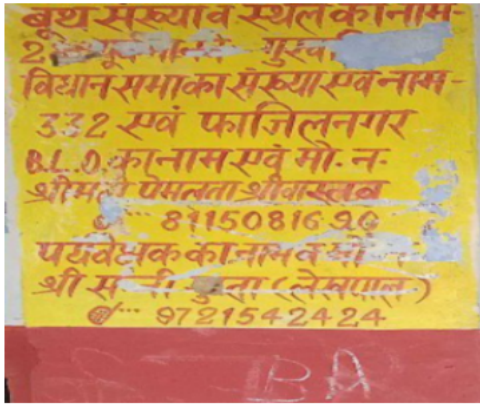 बूथ संख्या व स्थल का नाम-
2
विधान सभा का संख्या एवं नाम-
332 एवं फाजिलनगर
B.L.O का नाम एवं मो. न.
श्रीमती प्रेमलता श्रीवास्तव
8115081620
पर्यवेक्षक का नाम व मो
श्री (लेखपाल)
9721542424
BA